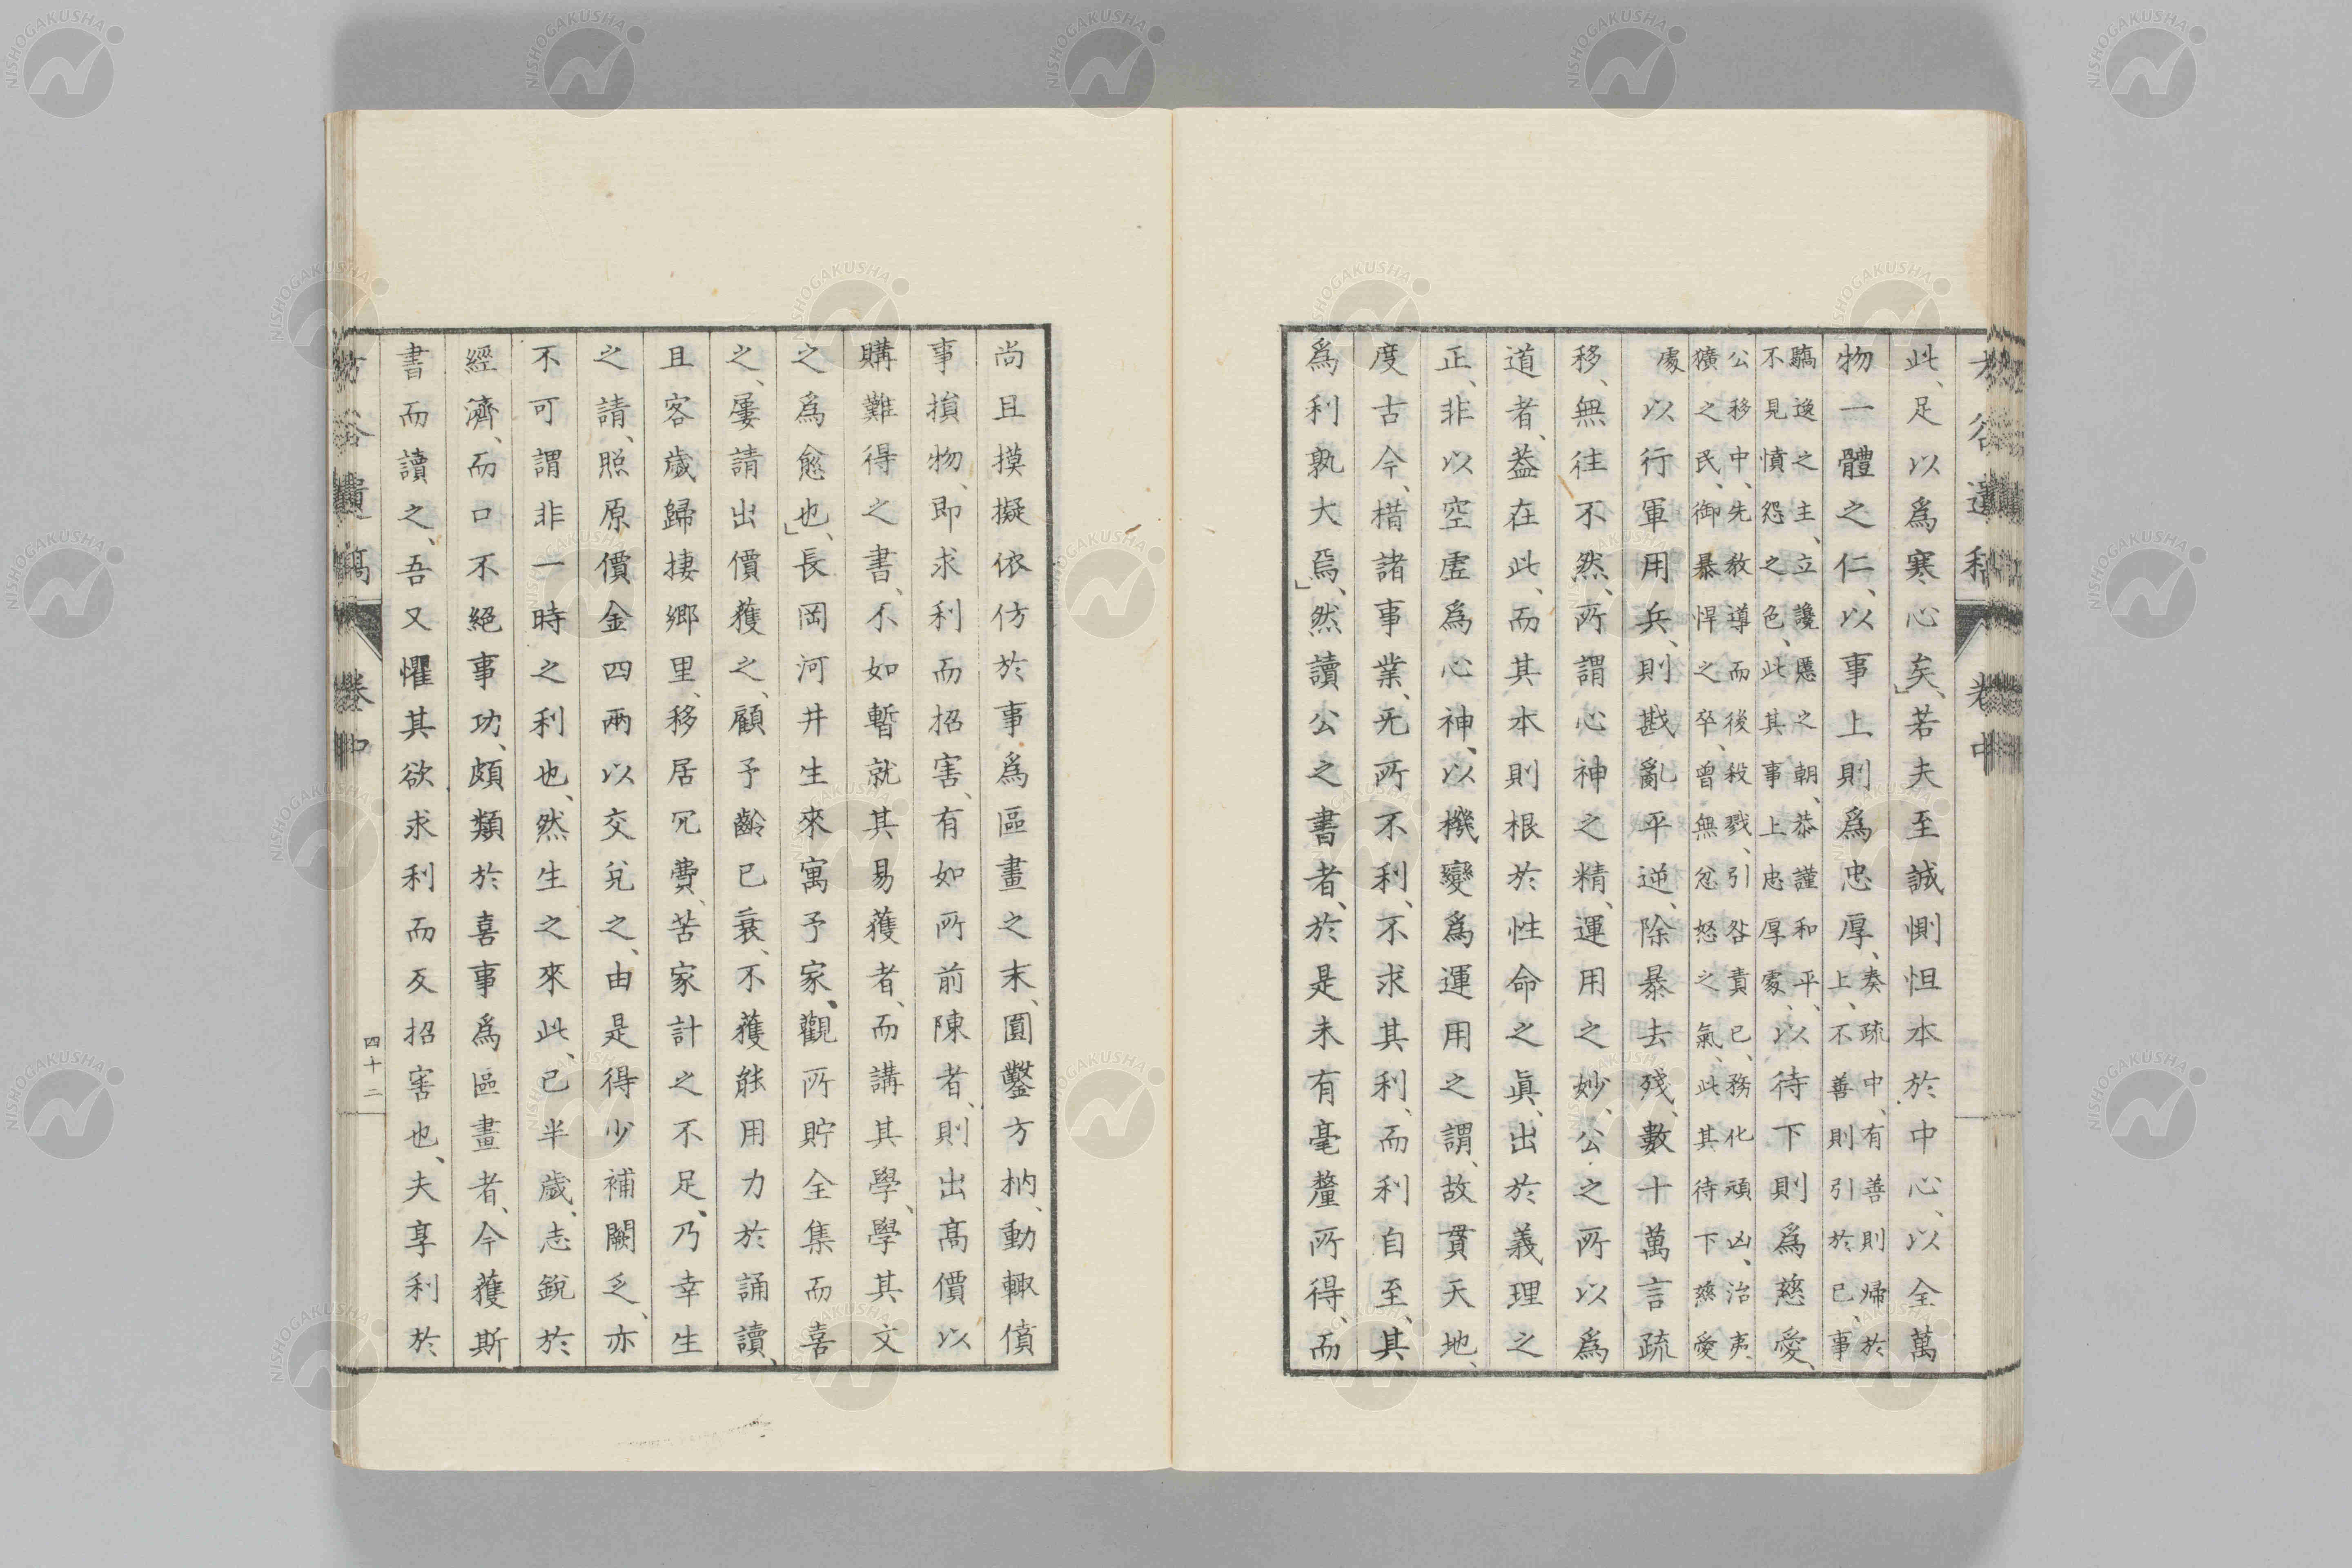 方谷遺稿 卷中
此、足以爲寒心矣、」若夫至誠惻怛本於中心、以全萬
物一體之仁、以事上則爲忠厚、奏疏中、有善則歸於
上、不善則引於己、事
驕逸之主、立讒慝之朝、恭謹和平、
不見憤怨之色、此其事上忠厚處以待下則爲慈愛、
公移中、先敎導而後殺戮、引咎責己、務化頑凶、治夷
獷之民、御暴悍之卒、曾無忿怒之氣、此其待下慈愛
處以行軍用兵、則戡亂平逆、除暴去殘、數十萬言疏
移、無往不然、所謂心神之精、運用之妙、公之所以爲
道者、葢在此、而其本則根於性命之眞、出於義理之
正、非以空虛爲心神、以機變爲運用之謂、故貫天地、
度古今、措諸事業、无所不利、不求其利、而利自至、其
爲利孰大焉、」然讀公之書者、於是未有毫釐所得、而
尚且摸擬依仿於事爲區畫之末、圓鑿方枘、動輙僨
事損物、即求利而招害、有如所前陳者、則出高價以
購難得之書、不如暫就其易獲者、而講其學、學其文
之爲愈也、」長岡河井生來寓予家、觀所貯全集而喜
之、屢請出價獲之、顧予齡已衰、不獲能用力於誦讀、
且客歲歸捿鄉里、移居冗費、苦家計之不足、乃幸生
之請、照原價金四兩以交兌之、由是得少補闕乏、亦
不可謂非一時之利也、然生之來此、已半歲、志銳於
經濟、而口不絕事功、頗類於喜事爲區畫者、今獲斯
書而讀之、吾又懼其欲求利而反招害也、夫享利於
方谷遺稿 卷中 四十二